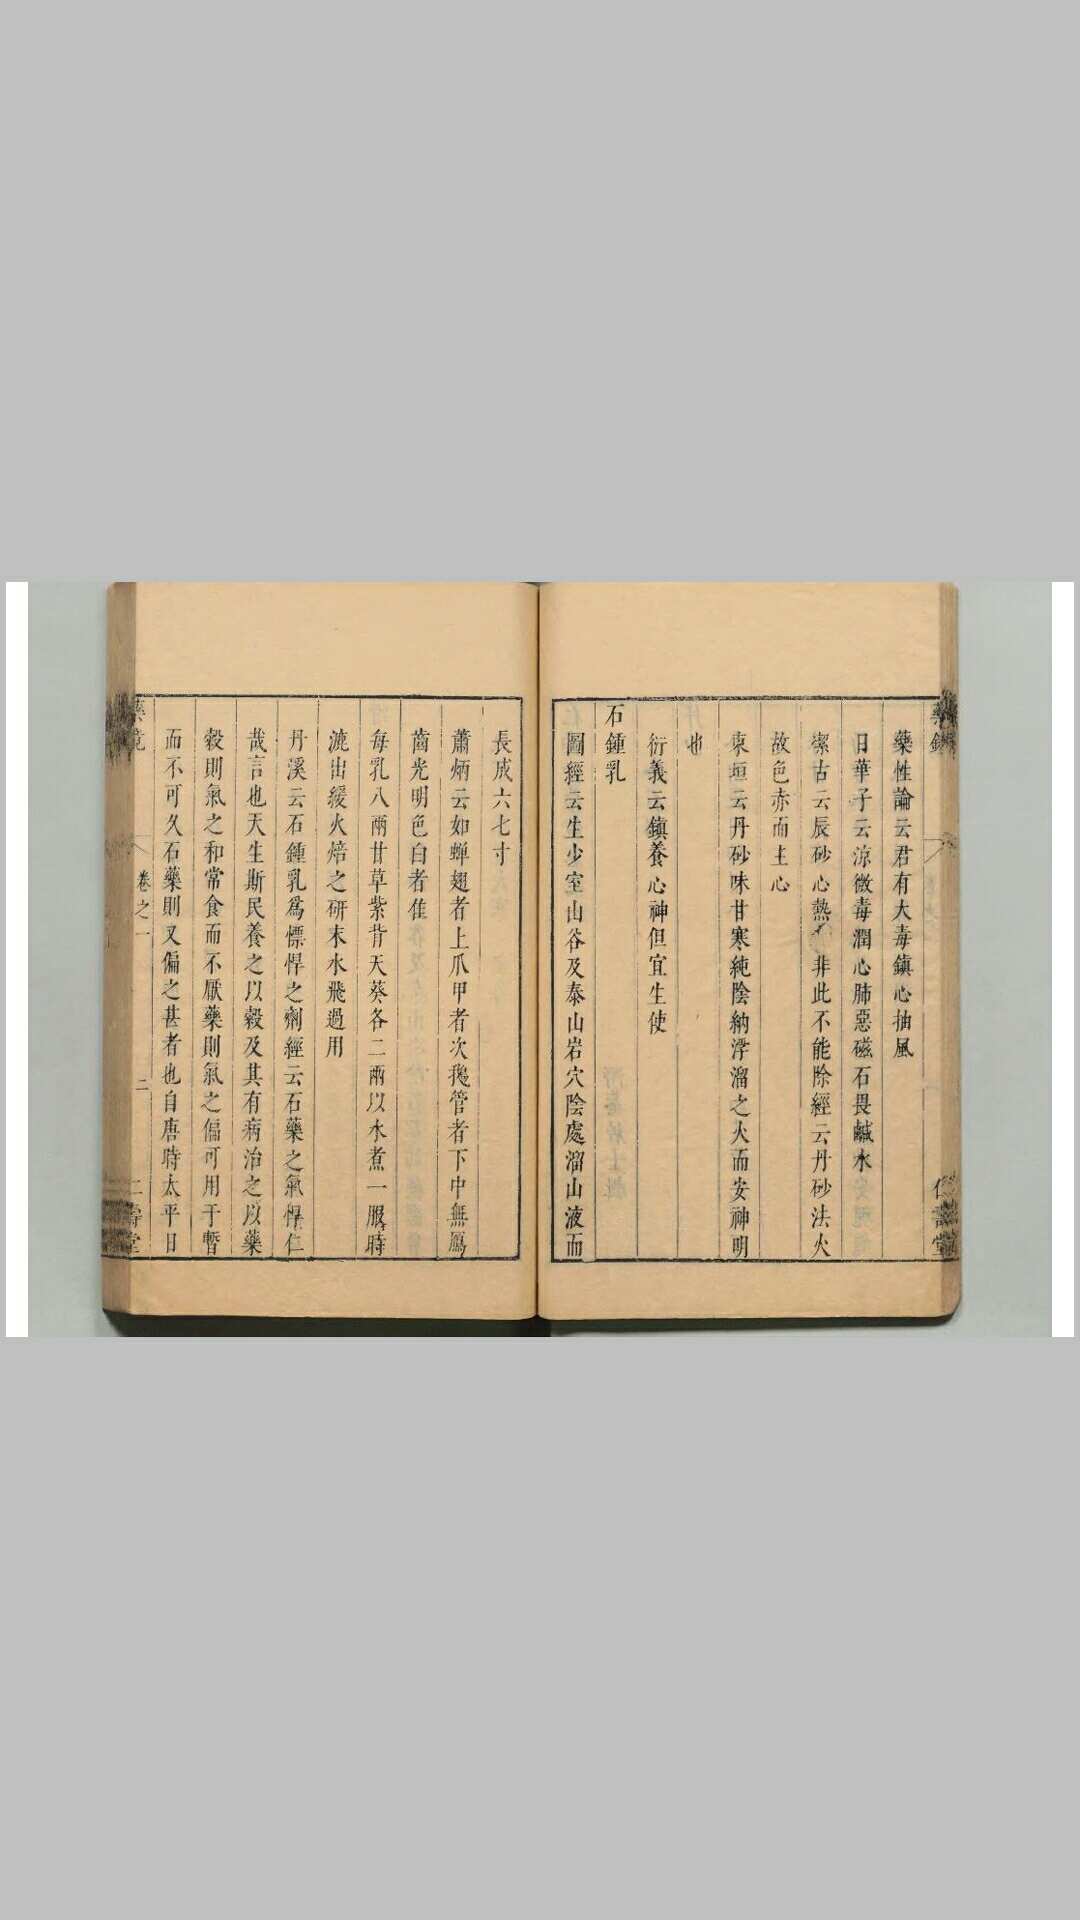 藥性論云君有大毒鎮心抽風
日華子云涼微毒潤心肺惡磁石畏鹹水
潔古云辰砂心熱非此不能除經云丹砂法火
故色赤而主心
東垣云丹砂味甘寒純陰納浮溜之火而安神明
也
衍義云鎮養心神但宜生使
石鍾乳
圖經云生少室山谷及泰山岩穴陰處溜山液而
長成六七寸
蕭炳云如蟬翅者上爪甲者次鵝管者下中無鴈
齒光明色白者佳
每乳八兩甘草紫背天葵各二兩以水煮一服時
漉出緩火焙之研末水飛過用
丹溪云石鍾乳爲慓悍之劑經云石藥之氣悍仁
哉言也天生斯民養之以穀及其有病治之以藥
穀則氣之和常食而不厭藥則氣之偏可用于暫
而不可久石藥則又偏之甚者也自唐時太平日
卷之一
二